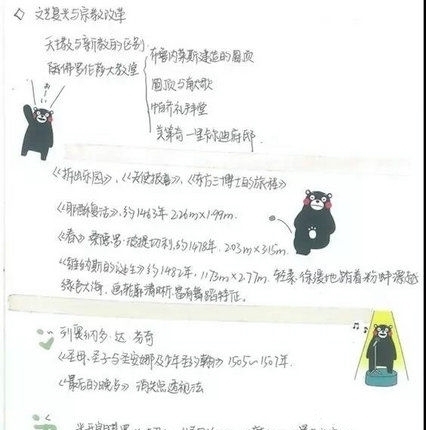 文艺复兴与宗教改革
天主教与新教的区别
佛罗伦萨大教堂
布鲁内莱斯建造的圆顶
圆顶与颂歌
帕齐礼拜堂
美第奇-里卡尔迪府邸
《逐出乐园》、《天使报喜》、《东方三博士的旅程》
《耶稣复活》.约1463年 2.26m×1.99m.
《春》桑德罗·波提切利.约1478年. 203m×315m.
《维纳斯的诞生》约1482年. 1.173m×2.77m. 轻柔.缓慢地踏着粉蚌
绿色大海. 画 清晰.富有舞蹈特征.
列奥纳多·达·芬奇
《圣母.圣子与圣安娜及 约翰》1505~1507年.
《最后的晚餐》 消失点透视法